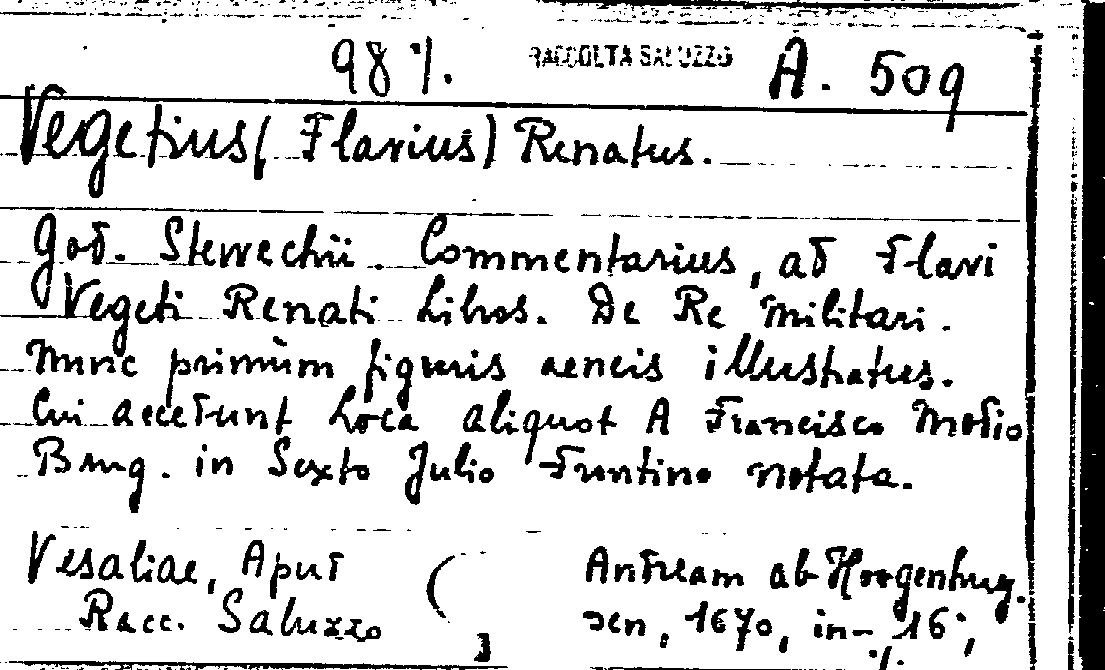 987. RACCOLTA SALUZZO A. 509
Vegetius (Flavius) Renatus.
God. Stewechii. Commentarius, ad Flavi
Vegeti Renati Libros. De Re Militari.
Nunc primùm figuris aeneis illustratus.
Cui accedunt Loca aliquot A Francisco Modio
Brug. in Sexto Julio Frontino notata.
Vesaliae, Apud ( Andream ab Hoogenhuy.
Racc. Saluzzo sen, 1670, in-16°,